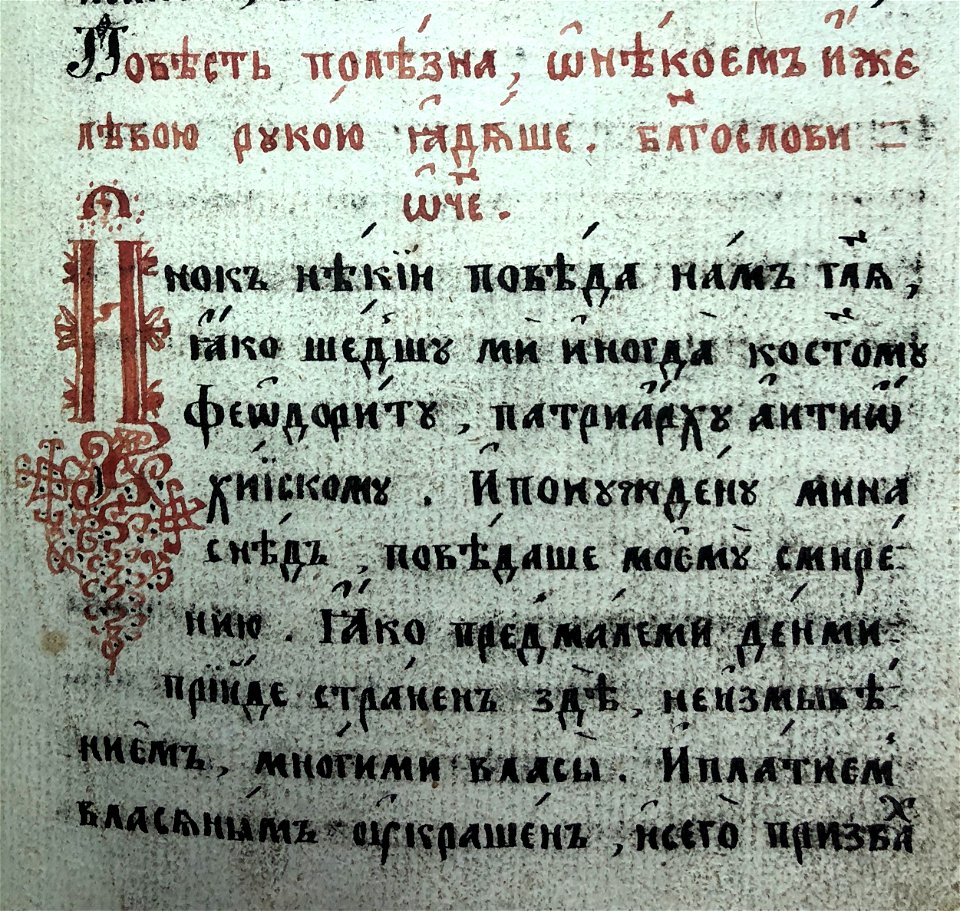 Повѣсть поле́зна, ѡ҆нѣ́коемъ и҆́же
лѣ́вою руко́ю ꙗ҆дѧ́ше. бл҃гослови
ѡ҆́ч҃е.
Инокъ нѣ́кїи повѣ́да на́мъ гл҃ѧ,
ꙗ҆́ко ше́дшу мѝ и҆ногда̀ кост҃ому
ѳеѡдори́ту, патриа́рху а҆нтиѡ
хи́йскому. И҆ понужде́ну мина
снѣ́дь, повѣ́даше моемꙋ̀ смире́
нию. Ꙗ҆́ко предма́леми де́нми
прїи́де стра́ненъ здѣ̀, неи҆змывѣ́
ниемъ, мно́гими власы̀. И҆пла́тием
власѧны́мъ ѹ҆краше́нъ, и҆сего̀ призвах